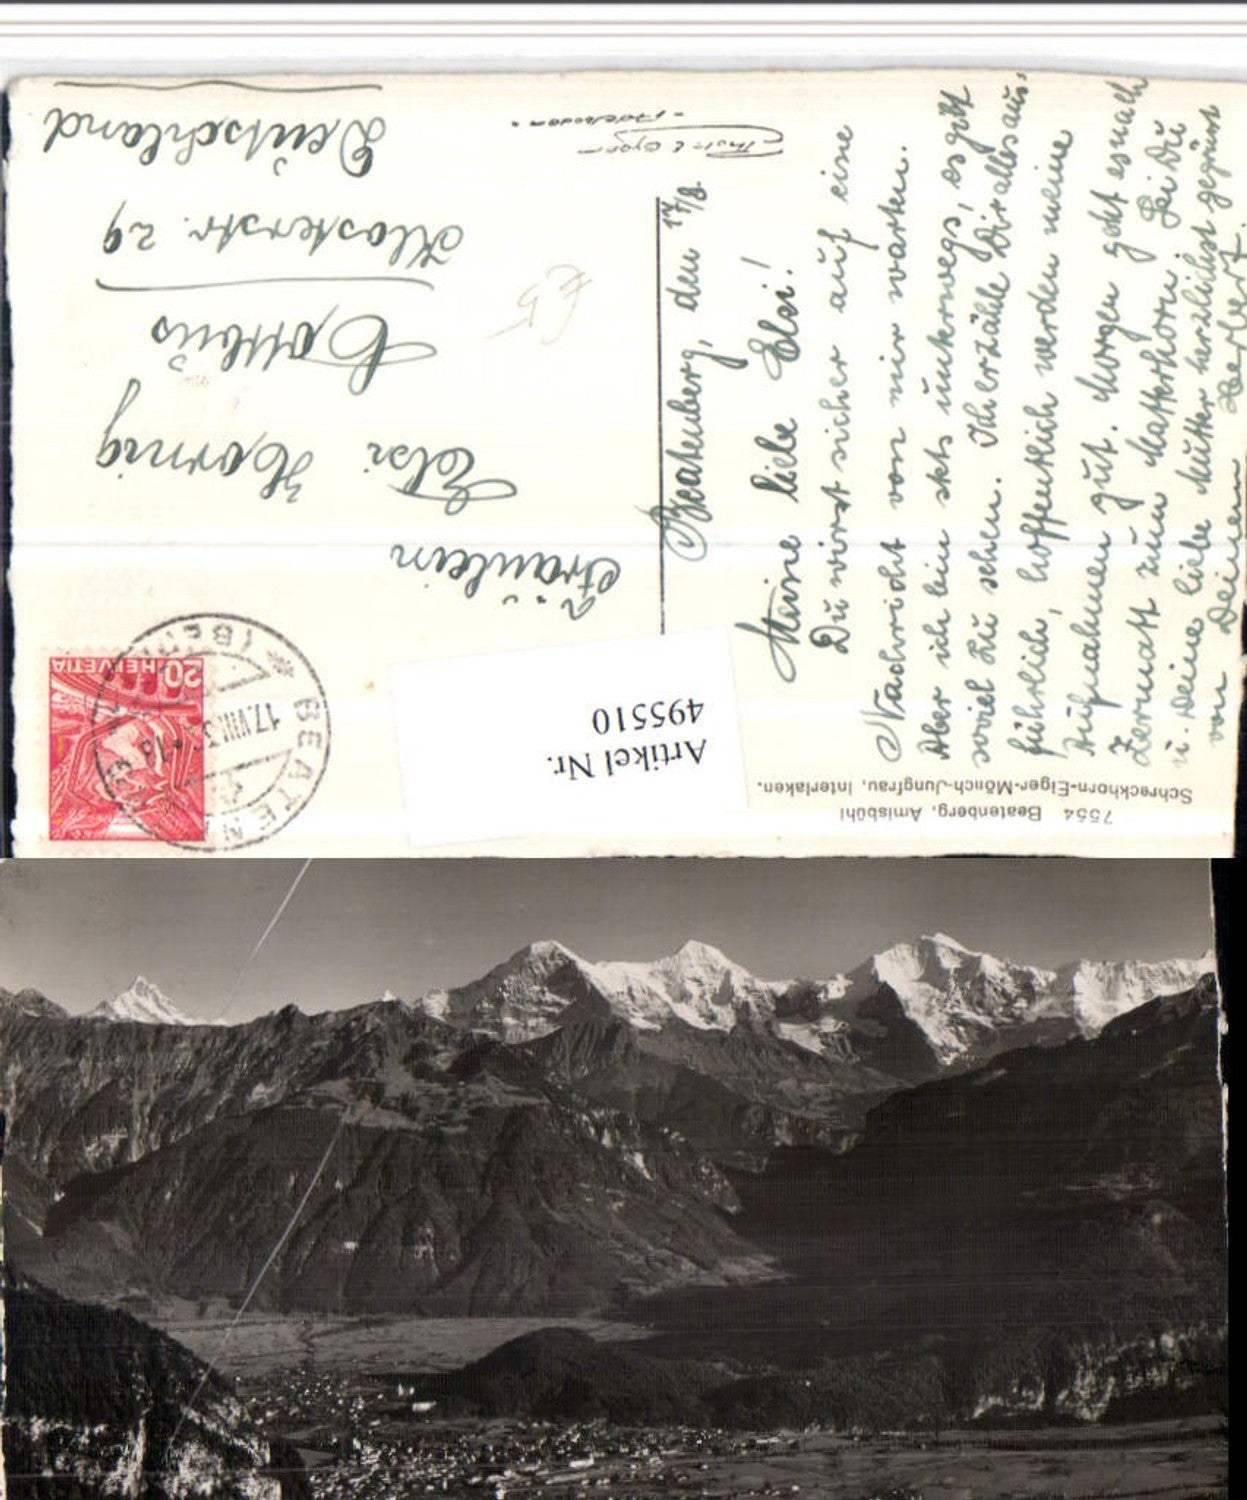 7554 Beatenberg, Amisbühl
Schreckhorn-Eiger-Mönch-Jungfrau, Interlaken.
Beatenberg, den 17/8.
Meine liebe Elsi!
Du wirst sicher auf eine
Nachricht von mir warten.
Aber ich bin stets unterwegs, es gibt
soviel zu sehen. Ich erzähle Dir alles aus-
führlich, hoffentlich werden meine
Aufnahmen gut. Morgen geht es nach
Zermatt zum Matterhorn. Sei Du
u. Deine liebe Mutter herzlichst gegrüsst
von Deinem Herbert.
Artikel Nr.
495510
HELVETIA
20
BEATEN
17.VIII.
Fräulein
Elsi Hornig
Cottbus
Klosterstr. 29
Deutschland
Thor E Gyger
Adelboden